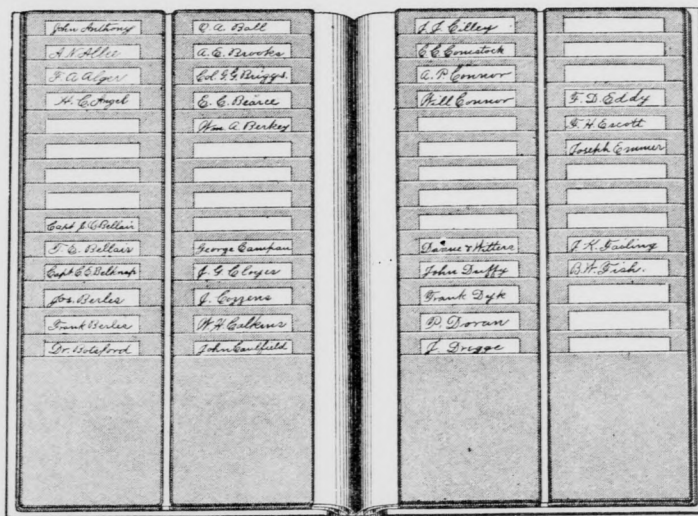 John Anthony
A. N. Albee
F. A. Alger
H. C. Angel
Capt. J. C. Bellair
F. E. Bellair
Capt. C. E. Belknap
Jos. Berles
Frank Berles
Dr. Botsford
O. A. Ball
A. E. Brooks
Col. G. G. Briggs.
E. C. Bearce
Wm. A. Berkey
George Campau
J. G. Clozes
J. Cozzens
W. H. Calkins
John Caulfield
J. J. Cilley
C. C. Comstock
A. P. Connor
Will Connor
Danne & Witters
John Duffy
Frank Dyk
P. Doran
J. Drigge
G. D. Eddy
G. H. Escott
Joseph Emmer
J. K. Fasling
B. W. Fish.